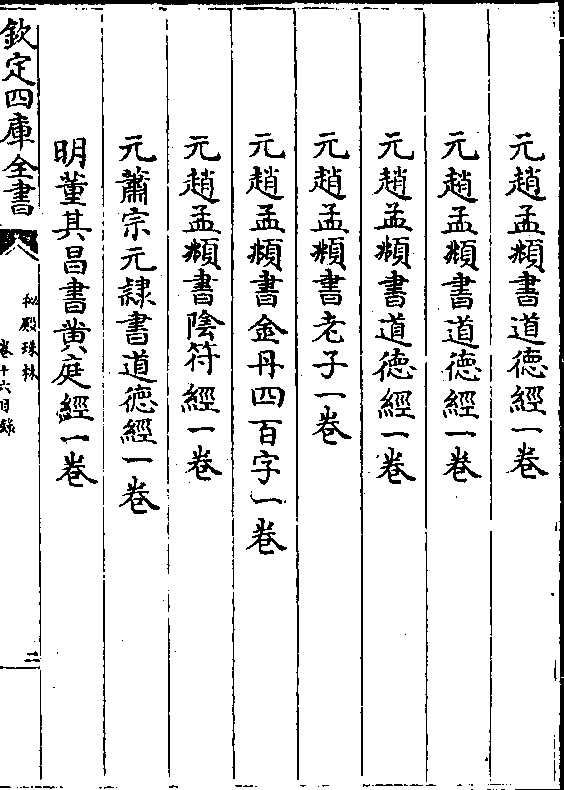 元趙孟頫書道德經一卷
元趙孟頫書道德經一卷
元趙孟頫書道德經一卷
元趙孟頫書老子一卷
元趙孟頫書金丹四百字一卷
元趙孟頫書陰符經一卷
元蕭宗元隷書道德經一卷
明董其昌書黄庭經一卷
欽定四庫全書
秘殿珠林
卷十六目錄
二